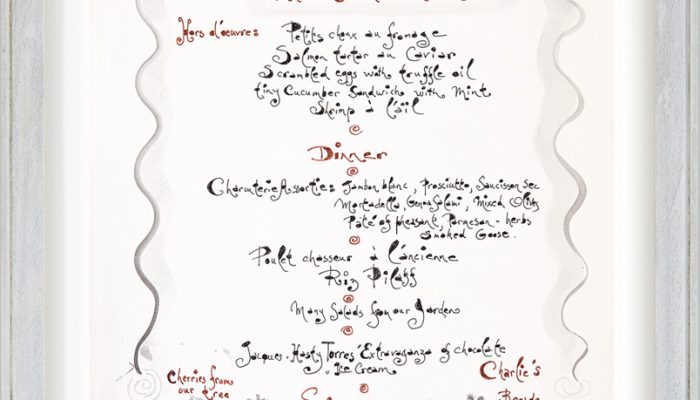 Hors d'oeuvres
Petits choux au fromage
Salmon tartar au Caviar
Scrambled eggs with truffle oil
tiny Cucumber Sandwich with Mint
Shrimp à l'ail
Dinner
Charcuterie Assorties Jambon blanc, Prosciutto, Saucisson Sec
Mortadella, Genoa Salami, Mixed Olives
Pâté of pheasant, Parmesan - herbs
Smoked Goose.
Poulet chasseur à l'ancienne
Riz Pilaff
Many Salads from our Garden
Jacques-Hasty Torres' Extravaganza of chocolate
Ice Cream
Cherries from
our tree
Charlie's